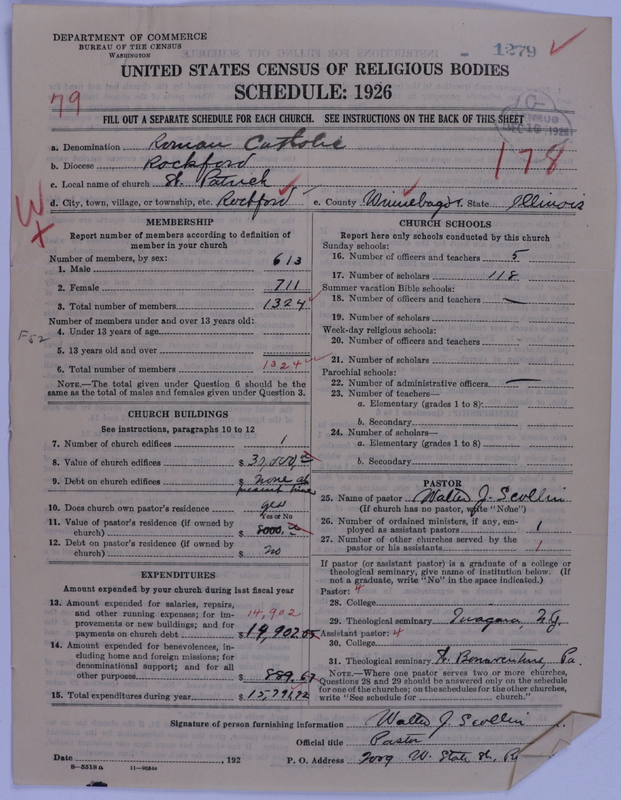 DEPARTMENT OF COMMERCE
BUREAU OF THE CENSUS
WASHINGTON
1279
UNITED STATES CENSUS OF RELIGIOUS BODIES
SCHEDULE: 1926
79
FILL OUT A SEPARATE SCHEDULE FOR EACH CHURCH. SEE INSTRUCTIONS ON THE BACK OF THIS SHEET
DEC 10 1926
178
a. Denomination Roman Catholic
b. Diocese Rockford
c. Local name of church St. Patrick
d. City, town, village, or township, etc. Rockford e. County Winnebago f. State Illinois
MEMBERSHIP
Report number of members according to definition of member in your church
Number of members, by sex:
1. Male 613
2. Female 711
3. Total number of members 1324
Number of members under and over 13 years old:
4. Under 13 years of age
5. 13 years old and over
6. Total number of members 1324
NOTE.—The total given under Question 6 should be the same as the total of males and females given under Question 3.
CHURCH BUILDINGS
See instructions, paragraphs 10 to 12
7. Number of church edifices 1
8. Value of church edifices $
9. Debt on church edifices $ None at present time
10. Does church own pastor's residence yes
Yes or No
11. Value of pastor's residence (if owned by church) $ 8000.
12. Debt on pastor's residence (if owned by church) $ no
EXPENDITURES
Amount expended by your church during last fiscal year
13. Amount expended for salaries, repairs, and other running expenses; for improvements or new buildings; and for payments on church debt 14,902 $ 19,902.05
14. Amount expended for benevolences, including home and foreign missions; for denominational support; and for all other purposes $ 889.67
15. Total expenditures during year $ 15,791.72
CHURCH SCHOOLS
Report here only schools conducted by this church
Sunday schools:
16. Number of officers and teachers 5
17. Number of scholars 118
Summer vacation Bible schools:
18. Number of officers and teachers —
19. Number of scholars
Week-day religious schools:
20. Number of officers and teachers
21. Number of scholars
Parochial schools:
22. Number of administrative officers —
23. Number of teachers—
a. Elementary (grades 1 to 8)
b. Secondary
24. Number of scholars—
a. Elementary (grades 1 to 8)
b. Secondary
PASTOR
25. Name of pastor Walter J. Scollin
(If church has no pastor, write "None")
26. Number of ordained ministers, if any, employed as assistant pastors 1
27. Number of other churches served by the pastor or his assistants 1
If pastor (or assistant pastor) is a graduate of a college or theological seminary, give name of institution below. (If not a graduate, write "No" in the space indicated.)
Pastor: 4
28. College
29. Theological seminary Niagara, N.Y.
Assistant pastor: 4
30. College
31. Theological seminary St. Bonaventure, Pa.
NOTE.—Where one pastor serves two or more churches, Questions 28 and 29 should be answered only on the schedule for one of the churches; on the schedules for the other churches, write "See schedule for church."
Signature of person furnishing information Walter J. Scollin
Official title Pastor
Date , 192
P. O. Address 2009 W. State St.,
8—5518a 11—90544